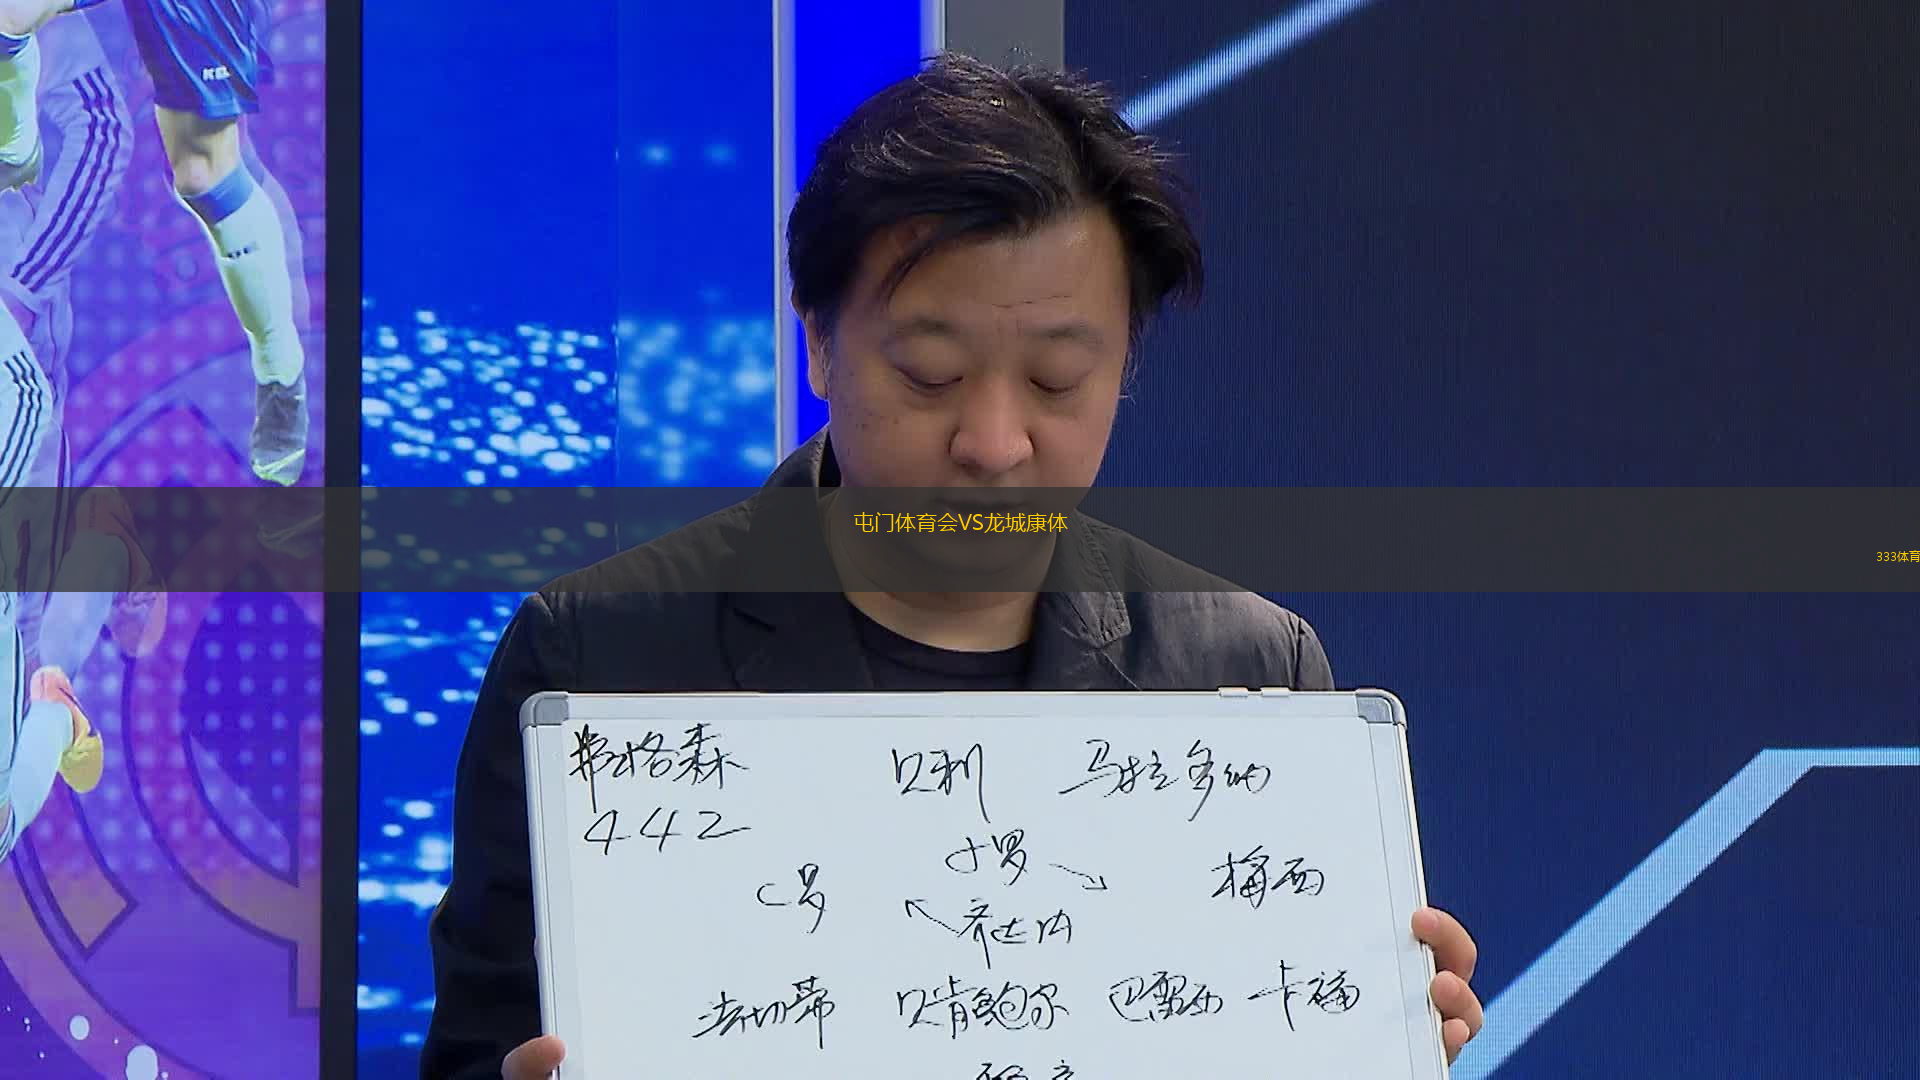 屯门体育会VS龙城康体
333体育
弗格森 贝利 马拉多纳
442
小罗
C罗 梅西
齐达内
法切蒂 贝肯鲍尔 巴雷西 卡福